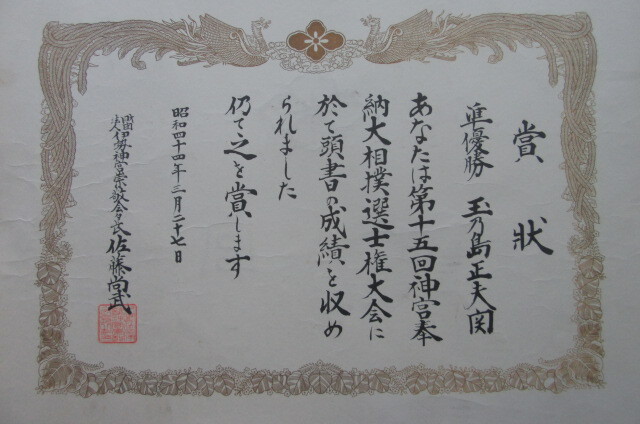 賞状
準優勝 玉乃島正夫関
あなたは第十五回神宮奉
納大相撲選士権大会に
於て頭書の成績を収め
られました
仍て之を賞します
昭和四十四年三月二十七日
財団法人伊勢神宮崇敬会会長佐藤尚武